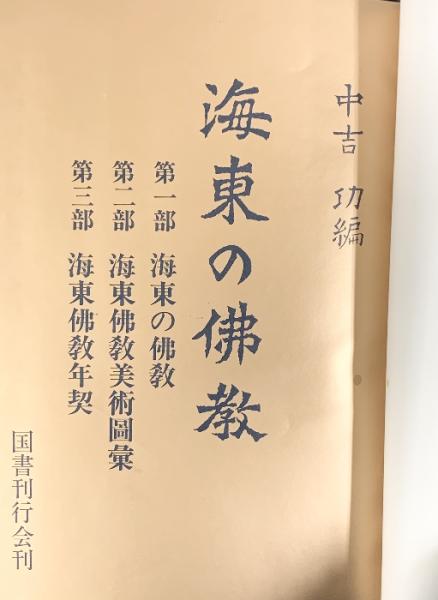 中吉 功編
海東の佛教
第一部 海東の佛教
第二部 海東佛教美術圖彙
第三部 海東佛教年契
国書刊行会刊